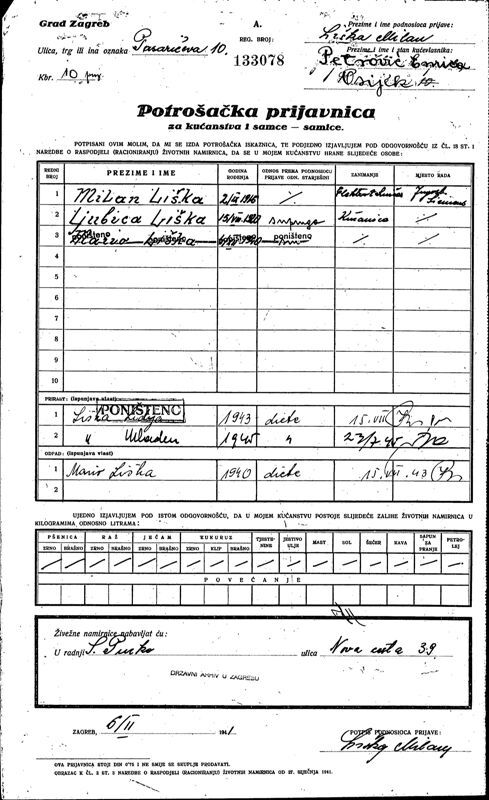 Grad Zagreb
Ulica, trg ili ina oznaka Pasarićeva 10.
Kbr. 10
A.
REG. BROJ:
133078
Prezime i ime podnosioca prijave:
Liška Milan
Prezime i ime i stan kućevlasnika:
Petrović
Osijek
Potrošačka prijavnica
za kućanstva i samce – samice.
POTPISANI OVIM MOLIM, DA MI SE IZDA POTROŠAČKA ISKAZNICA, TE PODJEDNO IZJAVLJUJEM POD ODGOVORNOŠĆU IZ ČL. 18 ST. 1
NAREDBE O RASPODJELI (RACIONIRANJU) ŽIVOTNIH NAMIRNICA, DA SE U MOJEM KUĆANSTVU HRANE SLIJEDEĆE OSOBE:
REDNI BROJ PREZIME I IME GODINA ROĐENJA ODNOS PREMA PODNOSIOCU PRIJAVE ODN. STARJEŠINI ZANIMANJE MJESTO RADA
1 Milan Liška
2 Ljubica Liška supruga Kućanica
3 poništeno Mario Liška poništeno poništeno poništeno
4
5
6
7
8
9
10
PRIRAST: (ispunjava vlast)
PONIŠTENO
1 Liška Lidija 1943 diete 15. VII
2 " Mladen 1945 " 23/7 45
OTPAD: (ispunjava vlast)
1 Mario Liška 1940 diete 15. VII. 43
2
UJEDNO IZJAVLJUJEM POD ISTOM ODGOVORNOŠĆU, DA U MOJEM KUĆANSTVU POSTOJE SLIJEDEĆE ZALIHE ŽIVOTNIH NAMIRNICA U
KILOGRAMIMA ODNOSNO LITRAMA:
PŠENICA RAŽ JEČAM KUKURUZ TJESTENINE JESTIVO ULJE MAST SOL ŠEĆER KAVA SAPUN ZA PRANJE PETROLEJ
ZRNO BRAŠNO ZRNO BRAŠNO ZRNO BRAŠNO ZRNO KLIP BRAŠNO
POVEĆANJE
Živežne namirnice nabavljat ću:
U radnji S. Purko ulica Nova cesta 39
DRŽAVNI ARHIV U ZAGREBU
ZAGREB, 6/II 1941.
POTPIS PODNOSIOCA PRIJAVE:
Liška Milan
OVA PRIJAVNICA STOJI DIN 0'75 I NE SMIJE SE SKUPLJE PRODAVATI.
OBRAZAC K ČL. 2 ST. 3 NAREDBE O RASPODJELI (RACIONIRANJU) ŽIVOTNIH NAMIRNICA OD 27. SIJEČNJA 1941.